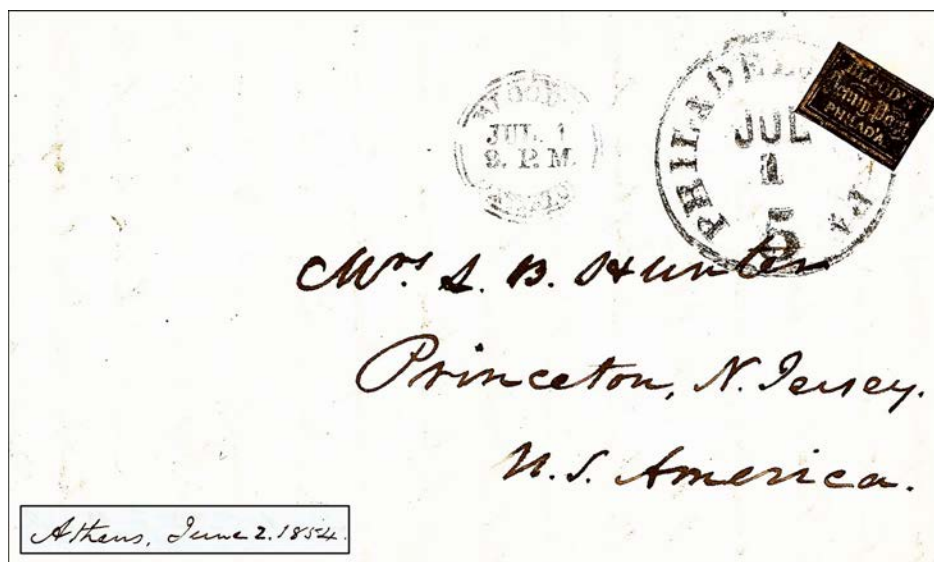 BLOOD'S
JUL. 1
PHILADELPHIA PA
JUL
1
5
BLOOD'S
Penny Post
PHILAD'A
Mrs S. B. Hunter
Princeton, N. Jersey.
U. S. America.
Athens, June 2. 1854.